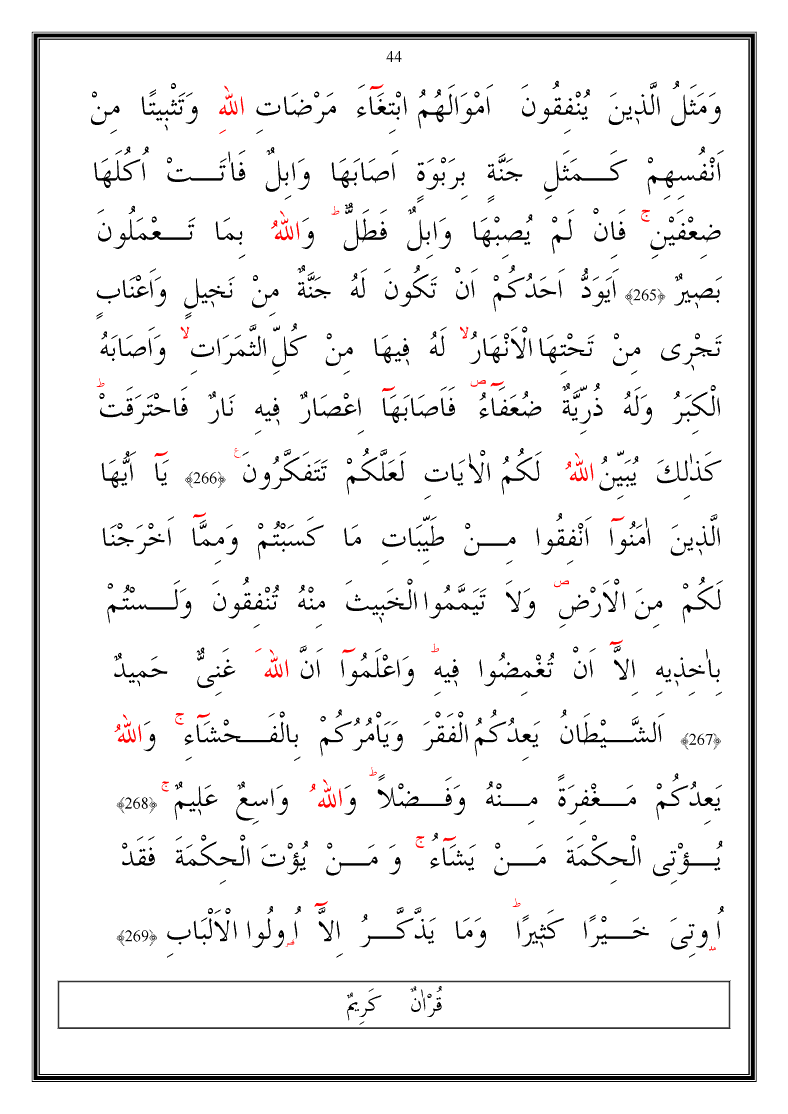 44
وَمَثَلُ الَّذٖينَ يُنْفِقُونَ اَمْوَالَهُمُ ابْتِغَٓاءَ مَرْضَاتِ اللهِ وَتَثْبٖيتًا مِنْ
اَنْفُسِهِمْ كَـــمَثَلِ جَنَّةٍ بِرَبْوَةٍ اَصَابَهَا وَابِلٌ فَاٰتَـــتْ اُكُلَهَا
ضِعْفَيْنِۚ فَاِنْ لَمْ يُصِبْهَا وَابِلٌ فَطَلٌّؕ وَاللهُ بِمَا تَـــعْمَلُونَ
بَصٖيرٌ ﴿265﴾ اَيَوَدُّ اَحَدُكُمْ اَنْ تَكُونَ لَهُ جَنَّةٌ مِنْ نَخٖيلٍ وَاَعْنَابٍ
تَجْرٖى مِنْ تَحْتِهَا الْاَنْهَارُۙ لَهُ فٖيهَا مِنْ كُلِّ الثَّمَرَاتِۙ وَاَصَابَهُ
الْكِبَرُ وَلَهُ ذُرِّيَّةٌ ضُعَفَٓاءُۖ فَاَصَابَهَٓا اِعْصَارٌ فٖيهِ نَارٌ فَاحْتَرَقَتْؕ
كَذٰلِكَ يُبَيِّنُ اللهُ لَكُمُ الْاٰيَاتِ لَعَلَّكُمْ تَتَفَكَّرُونَࣖ ﴿266﴾ يَٓا اَيُّهَا
الَّذٖينَ اٰمَنُٓوا اَنْفِقُوا مِـــنْ طَيِّبَاتِ مَا كَسَبْتُمْ وَمِمَّٓا اَخْرَجْنَا
لَكُمْ مِنَ الْاَرْضِۖ وَلَا تَيَمَّمُوا الْخَبٖيثَ مِنْهُ تُنْفِقُونَ وَلَـــسْتُمْ
بِاٰخِذٖيهِ اِلَّٓا اَنْ تُغْمِضُوا فٖيهِؕ وَاعْلَمُٓوا اَنَّ اللهَ غَنِىٌّ حَمٖيدٌ
﴿267﴾ اَلشَّـــيْطَانُ يَعِدُكُمُ الْفَقْرَ وَيَاْمُرُكُمْ بِالْفَـــحْشَٓاءِۚ وَاللهُ
يَعِدُكُمْ مَـــغْفِرَةً مِـــنْهُ وَفَـــضْلًاؕ وَاللهُ وَاسِعٌ عَلٖيمٌۚ ﴿268﴾
يُـــؤْتِى الْحِكْمَةَ مَـــنْ يَشَٓاءُۚ وَ مَـــنْ يُؤْتَ الْحِكْمَةَ فَقَدْ
اُو۫تِىَ خَـــيْرًا كَثٖيرًاؕ وَمَا يَذَّكَّـــرُ اِلَّٓا اُو۬لُوا الْاَلْبَابِ ﴿269﴾
قُرْاٰنٌ كَرِيمٌ